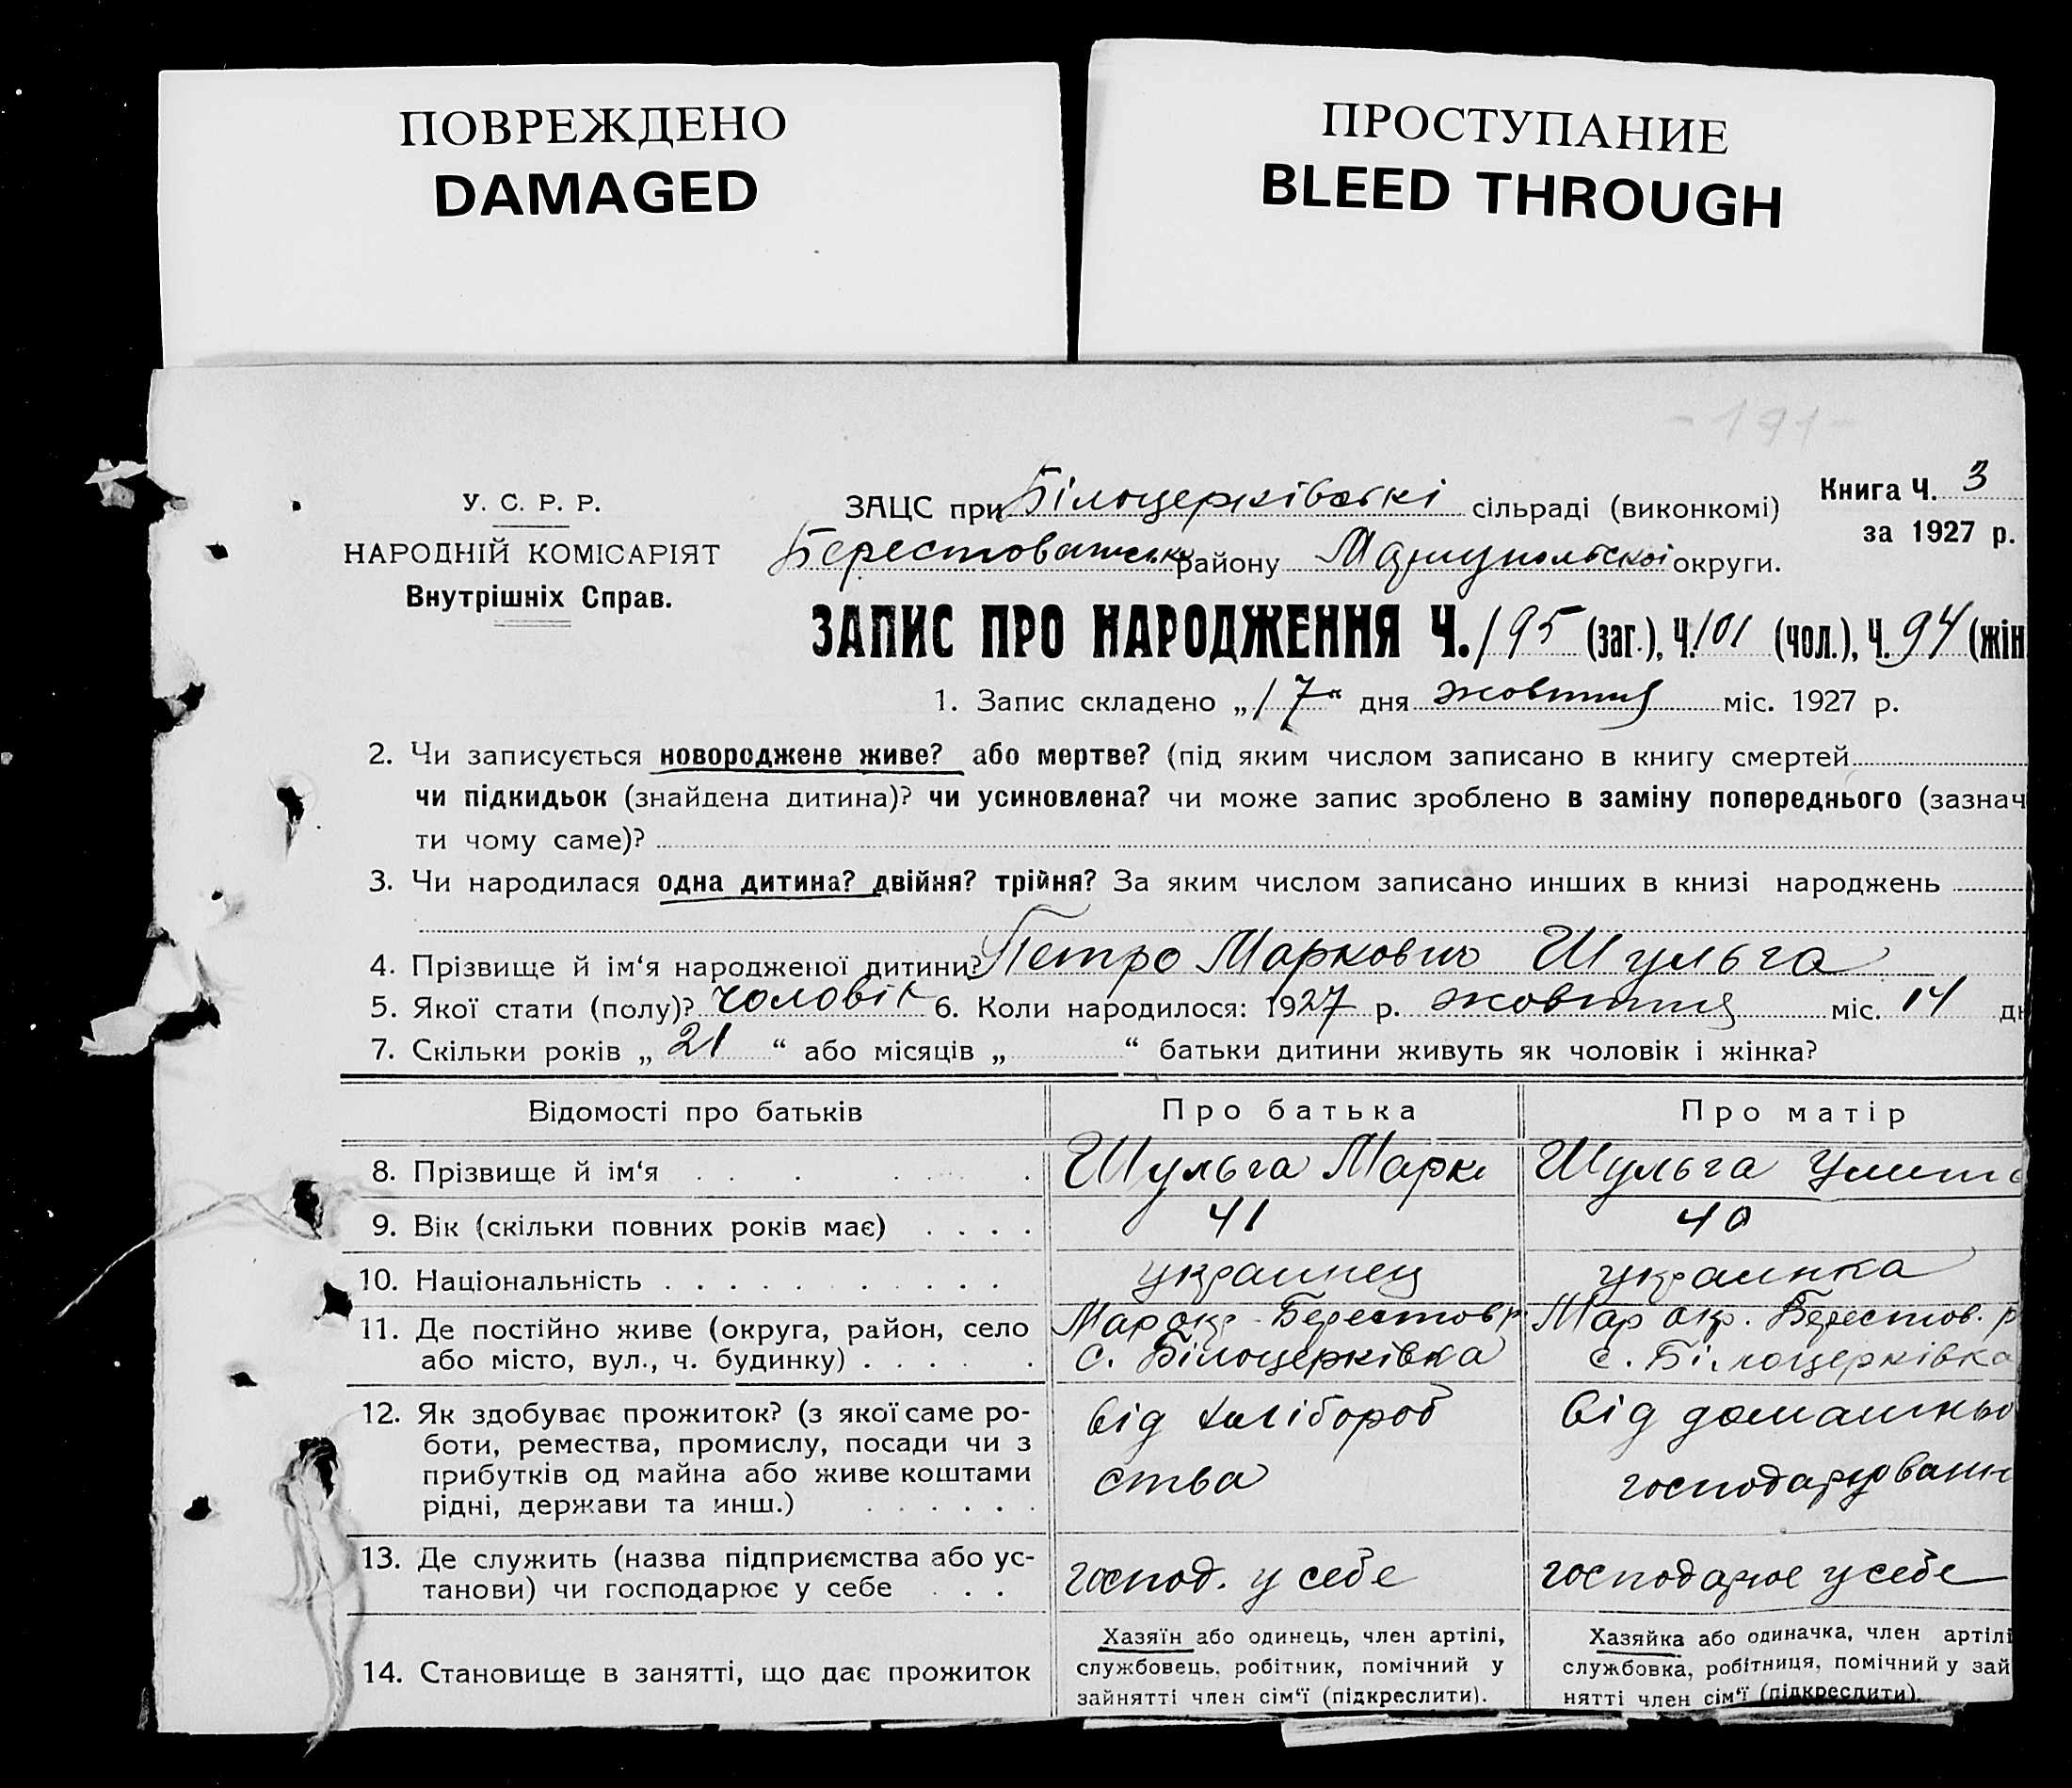 ПОВРЕЖДЕНО
DAMAGED
ПРОСТУПАНИЕ
BLEED THROUGH
-191-
У. С. Р. Р.
НАРОДНІЙ КОМІСАРІЯТ
Внутрішніх Справ.
ЗАЦС при Білоцерківські сільраді (виконкомі)
Книга Ч. 3
за 1927 р.
району Маріупольської округи.
ЗАПИС ПРО НАРОДЖЕННЯ Ч. 195 (заг.), Ч. 101 (чол.), Ч. 94 (жін
1. Запис складено „17“ дня жовтня міс. 1927 р.
2. Чи записується новороджене живе? або мертве? (під яким числом записано в книгу смертей
чи підкидьок (знайдена дитина)? чи усиновлена? чи може запис зроблено в заміну попереднього (зазнач
ти чому саме)?
3. Чи народилася одна дитина? двійня? трійня? За яким числом записано инших в книзі народжень
4. Прізвище й ім‘я народженої дитини? Петро Маркович Шульга
5. Якої стати (полу)? чоловік 6. Коли народилося: 1927 р. жовтня міс. 14 дн
7. Скільки років „ 21 “ або місяців „ “ батьки дитини живуть як чоловік і жінка?
Відомості про батьків Про батька Про матір
8. Прізвище й ім‘я Шульга Марко Шульга Улита
9. Вік (скільки повних років має) 41 40
10. Національність украинец украинка
11. Де постійно живе (округа, район, село Мар окр. Берестов р. Мар окр. Берестов. р
або місто, вул., ч. будинку) с. Білоцерківка с. Білоцерківка
12. Як здобуває прожиток? (з якої саме ро- від хлібороб від домашньо
боти, ремества, промислу, посади чи з
прибутків од майна або живе коштами ства господарюванн
рідні, держави та инш.)
13. Де служить (назва підприємства або ус-
танови) чи господарює у себе господ. у себе господарює у себе
14. Становище в занятті, що дає прожиток
Хазяїн або одинець, член артілі,
службовець, робітник, помічний у
зайнятті член сім‘ї (підкреслити).
Хазяйка або одиначка, член артілі
службовка, робітниця, помічний у зай
нятті член сім‘ї (підкреслити).